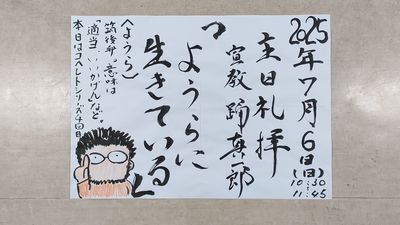 2025年7月6日(日)
10:30
11:45
主日礼拝
宣教 踊真一郎
「ようらに
生きている」
〈ようら〉
筑後弁。意味は
「適当、いいかげん」など。
本日はコヘレトシリーズ4回目